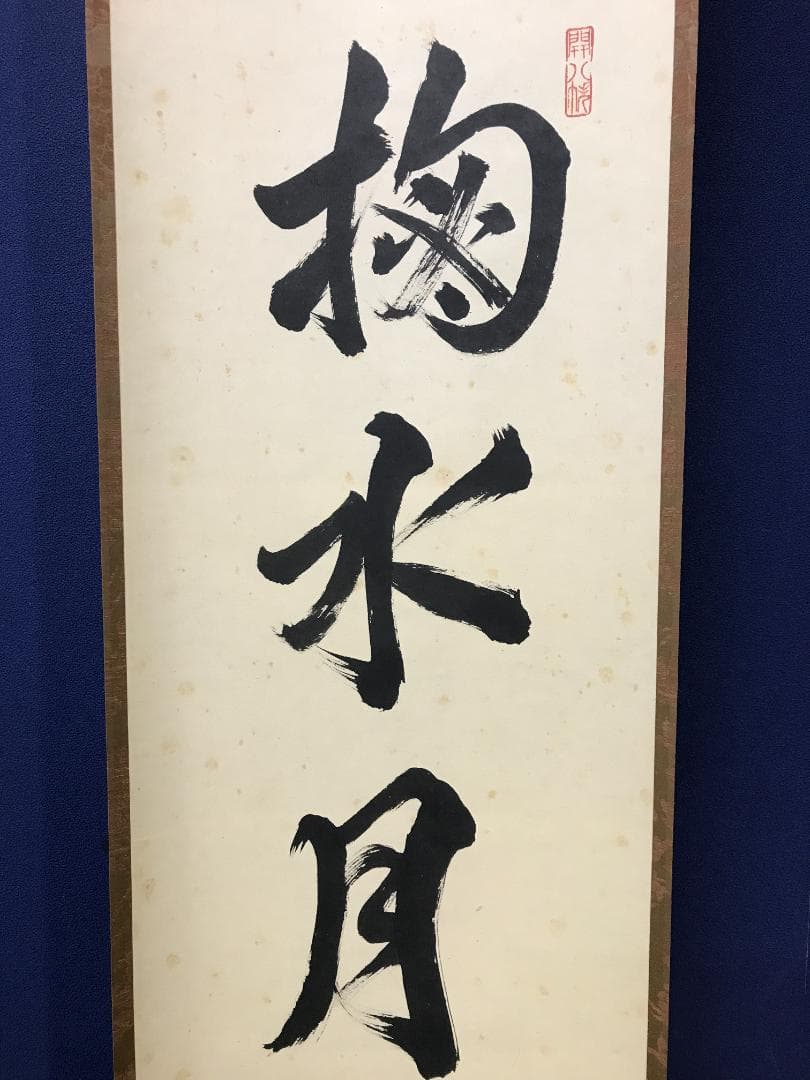 掬水月